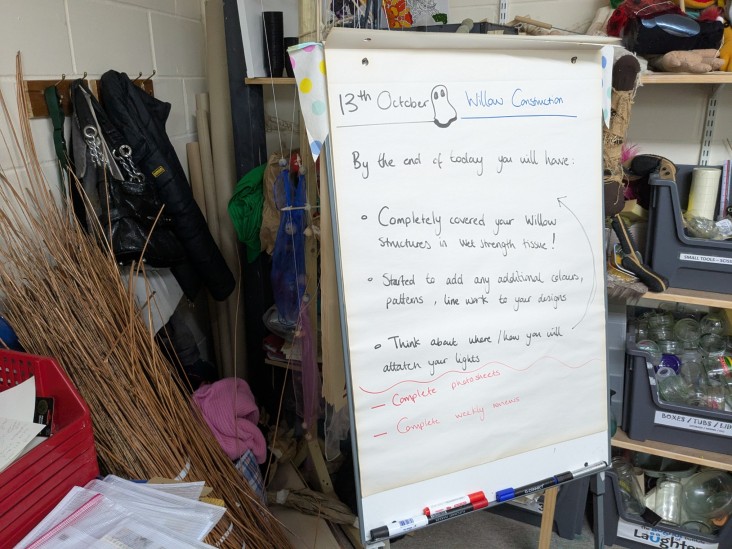 13th October
Willow Construction
By the end of today you will have:
Completely covered your Willow
structures in wet strength tissue!
Started to add any additional colours,
patterns, line work to your designs
Think about where/how you will
attatch your lights
– Complete photosheets
– Complete weekly reviews
SMALL TOOLS –
BOXES / TUBS /
Laughter